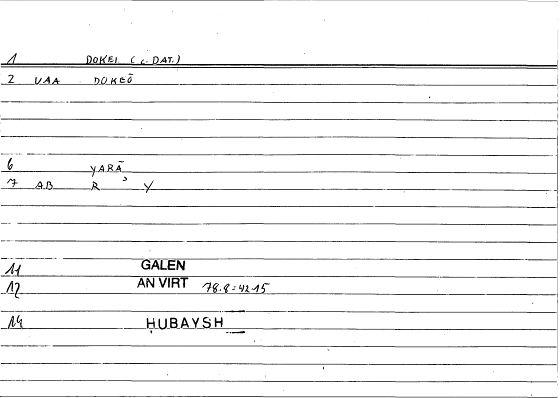 1 DOKEI (c. DAT.)
2 VAA DOKEŌ
6 YARĀ
7 AB R ʾ Y
11 GALEN
12 AN VIRT 78.8 = 42.15
14 ḤUBAYSH